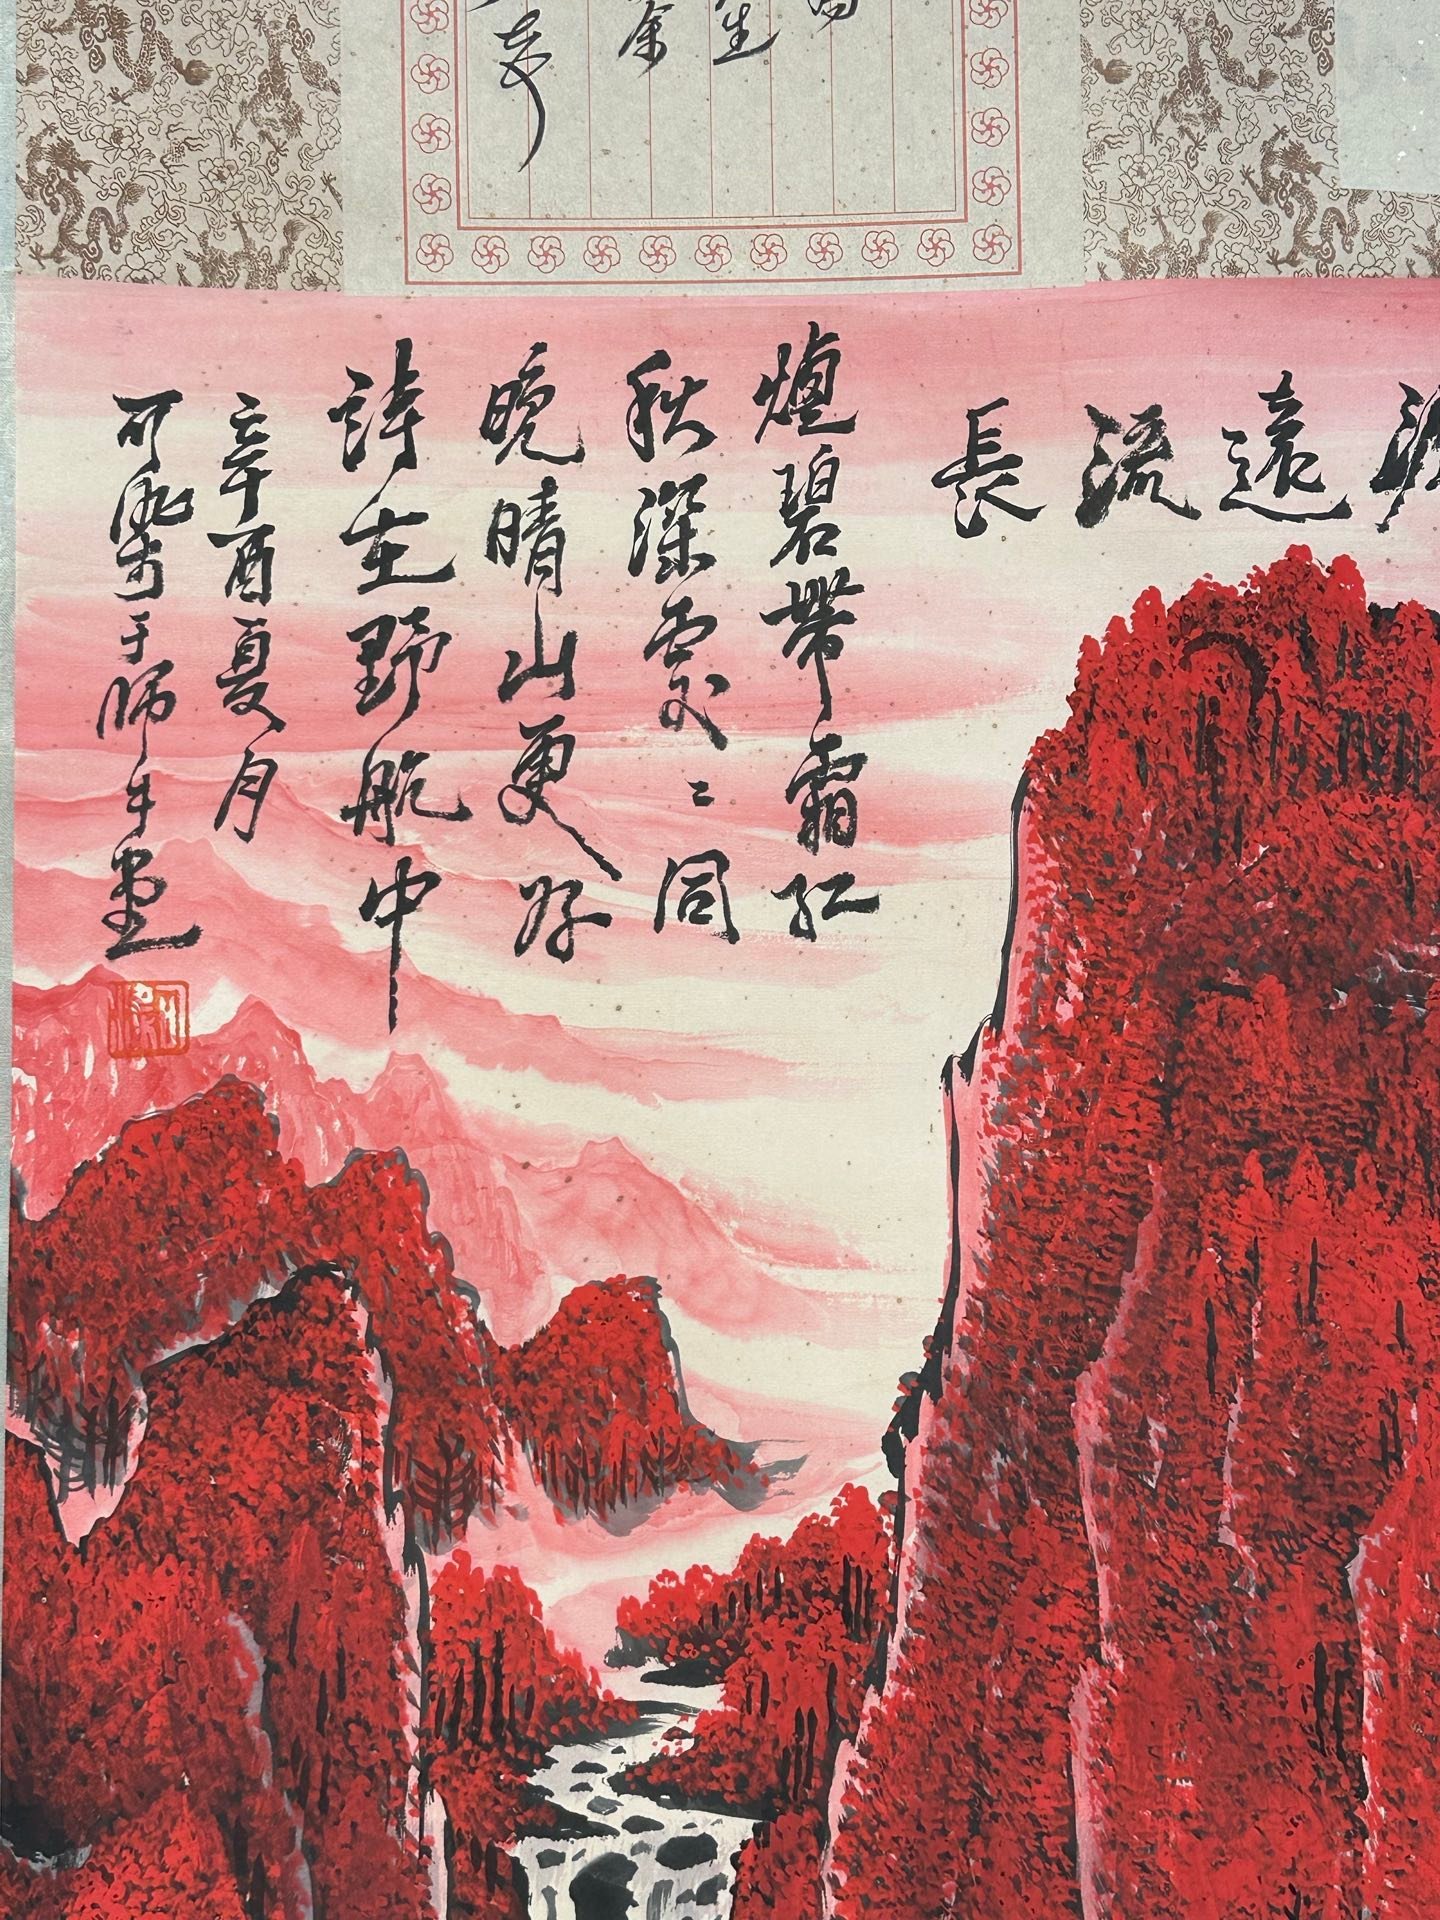 源遠流長
煙碧帶霜紅
秋深處〻同
晚晴山更好
詩在野航中
辛酉夏月
可染寫于師牛堂
余
生